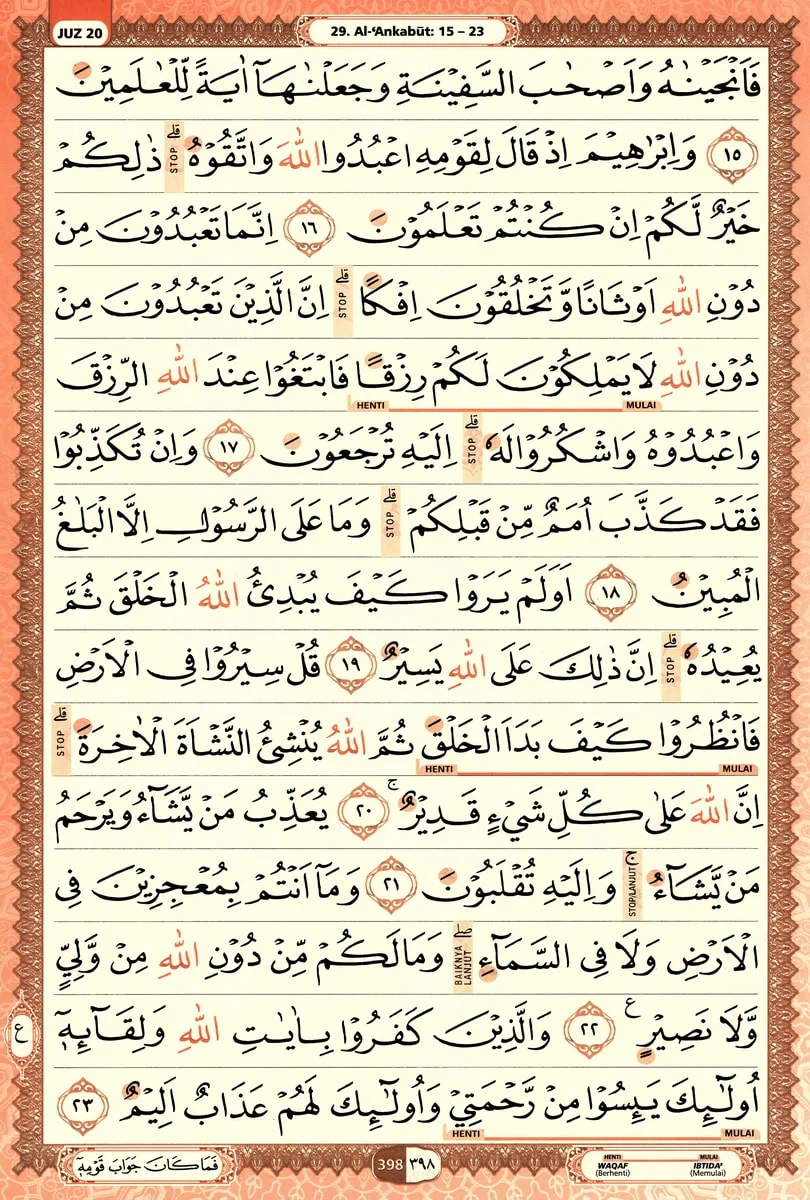 JUZ 20
29. Al-‘Ankabūt: 15 – 23
فَاَنْجَيْنٰهُ وَاَصْحٰبَ السَّفِيْنَةِ وَجَعَلْنٰهَآ اٰيَةً لِّلْعٰلَمِيْنَ
١٥ وَاِبْرٰهِيْمَ اِذْ قَالَ لِقَوْمِهِ اعْبُدُوا اللّٰهَ وَاتَّقُوْهُ ۗ STOP ذٰلِكُمْ
خَيْرٌ لَّكُمْ اِنْ كُنْتُمْ تَعْلَمُوْنَ ١٦ اِنَّمَا تَعْبُدُوْنَ مِنْ
دُوْنِ اللّٰهِ اَوْثَانًا وَّتَخْلُقُوْنَ اِفْكًا ۗ STOP اِنَّ الَّذِيْنَ تَعْبُدُوْنَ مِنْ
دُوْنِ اللّٰهِ لَا يَمْلِكُوْنَ لَكُمْ رِزْقًا فَابْتَغُوْا عِنْدَ اللّٰهِ الرِّزْقَ
HENTI MULAI
وَاعْبُدُوْهُ وَاشْكُرُوْا لَهٗ ۗ STOP اِلَيْهِ تُرْجَعُوْنَ ١٧ وَاِنْ تُكَذِّبُوْا
فَقَدْ كَذَّبَ اُمَمٌ مِّنْ قَبْلِكُمْ ۗ STOP وَمَا عَلَى الرَّسُوْلِ اِلَّا الْبَلٰغُ
الْمُبِيْنُ ١٨ اَوَلَمْ يَرَوْا كَيْفَ يُبْدِئُ اللّٰهُ الْخَلْقَ ثُمَّ
يُعِيْدُهٗ ۗ STOP اِنَّ ذٰلِكَ عَلَى اللّٰهِ يَسِيْرٌ ١٩ قُلْ سِيْرُوْا فِى الْاَرْضِ
فَانْظُرُوْا كَيْفَ بَدَاَ الْخَلْقَ ثُمَّ اللّٰهُ يُنْشِئُ النَّشْاَةَ الْاٰخِرَةَ ۗ STOP
HENTI MULAI
اِنَّ اللّٰهَ عَلٰى كُلِّ شَيْءٍ قَدِيْرٌ ۚ ٢٠ يُعَذِّبُ مَنْ يَّشَاۤءُ وَيَرْحَمُ
مَنْ يَّشَاۤءُ ۚ STOP/LANJUT وَاِلَيْهِ تُقْلَبُوْنَ ٢١ وَمَآ اَنْتُمْ بِمُعْجِزِيْنَ فِى
الْاَرْضِ وَلَا فِى السَّمَاۤءِ ۖ BAIKNYA LANJUT وَمَا لَكُمْ مِّنْ دُوْنِ اللّٰهِ مِنْ وَّلِيٍّ
وَّلَا نَصِيْرٍ ع ٢٢ وَالَّذِيْنَ كَفَرُوْا بِاٰيٰتِ اللّٰهِ وَلِقَاۤىِٕهٖٓ
ع
اُولٰۤىِٕكَ يَىِٕسُوْا مِنْ رَّحْمَتِيْ وَاُولٰۤىِٕكَ لَهُمْ عَذَابٌ اَلِيْمٌ ٢٣
HENTI MULAI
فَمَا كَانَ جَوَابَ قَوْمِهٖٓ
398 ٣٩٨
HENTI MULAI
WAQAF IBTIDA'
(Berhenti) (Memulai)